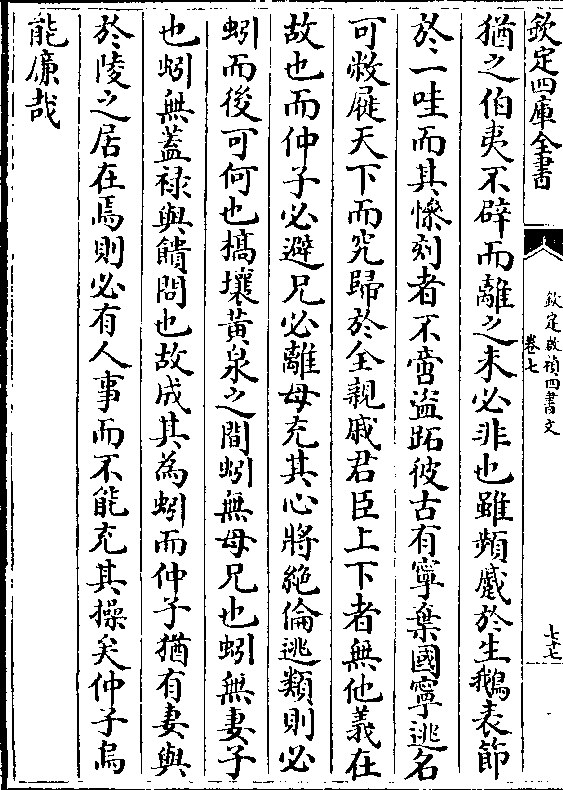 欽定四庫全書
欽定啟禎四書文
卷七
七十七
猶之伯夷不辟而離之未必非也雖頻蹙於生鵝表節
於一哇而其慘刻者不啻盜跖彼古有寧棄國寧逃名
可敝屣天下而究歸於全親戚君臣上下者無他義在
故也而仲子必避兄必離母充其心將絶倫逃類則必
蚓而後可何也槁壤黄泉之間蚓無母兄也蚓無妻子
也蚓無蓋祿與饋問也故成其為蚓而仲子猶有妻與
於陵之居在焉則必有人事而不能充其操矣仲子烏
能廉哉